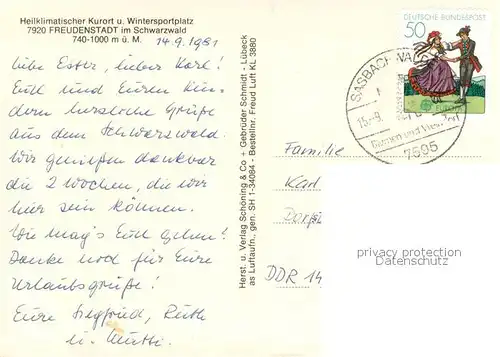 Heilklimatischer Kurort u. Wintersportplatz
7920 FREUDENSTADT im Schwarzwald
740-1000 m ü. M.
14.9.1981
Liebe Ester, lieber Karl!
Euch und Euren Kin-
dern herzliche Grüße
aus dem Schwarzwald.
Wir genießen dankbar
die 2 Wochen, die wir
hier sein können.
Wie mag's Euch gehen?
Danke noch für Eure
Urlaubsgrüße!
Eure Siegfried, Ruth
u. Mutti.
Herst. u. Verlag Schöning & Co + Gebrüder Schmidt - Lübeck
as Luftaufn., gen. SH 1-34084 - Bestellnr. Freud Luft KL 3880
DEUTSCHE BUNDESPOST
50
EUROPA
SASBACHWALDEN
15.-9.
Blumen und
7595
Familie
Karl
DDR 14
privacy protection
Datenschutz